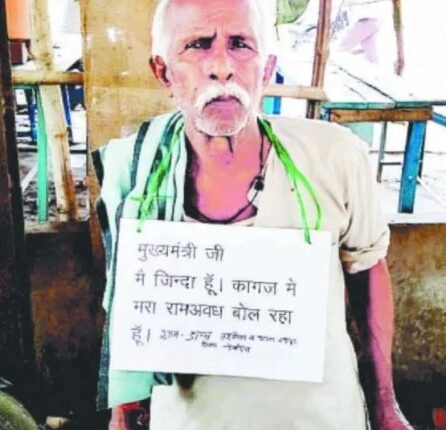 मुख्यमंत्री जी
मै जिन्दा हूँ। कागज मे
मरा रामअवध बोल रहा
हूँ।